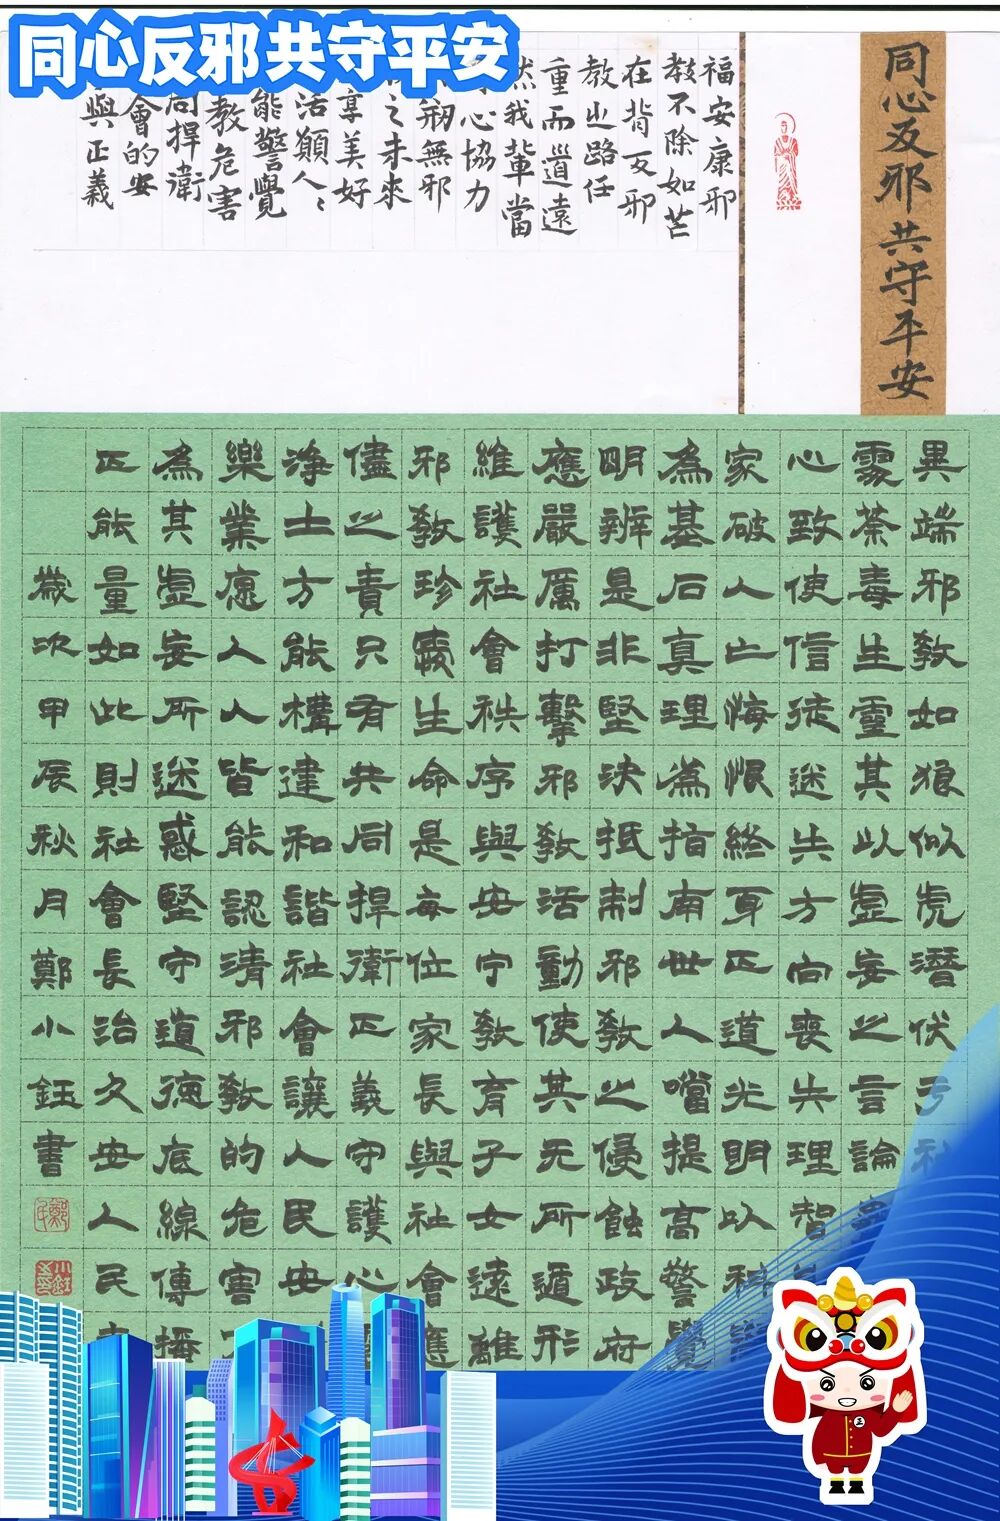 同心反邪共守平安
同心反邪共守平安
福安康邪
教不除如芒
在背反邪
教之路任
重而道遠
然我輩當
心協力
無邪
之未來
享美好
活願人々
能警覺
教危害
同捍衛
會的安
與正義
異端邪教如狼似虎潛伏于
霧荼毒生靈其以虛妄之言論
心致使信徒迷失方向喪失理智
家破人亡悔恨終身正道光明以科
為基石真理為指南世人噹提高警覺
明辨是非堅決抵制邪教之侵蝕政府
應嚴厲打擊邪教活動使其无所遁形
維護社會秩序與安宁教育子女遠離
邪教珍愛生命是每位家長與社會應
儘之責只有共同捍衛正義守護心
淨土方能構建和諧社會讓人民安
樂業愿人人皆能認清邪教的危害
為其虛妄所迷惑堅守道德底線傳播
正能量如此則社會長治久安人民
歲次甲辰秋月鄭小鈺書